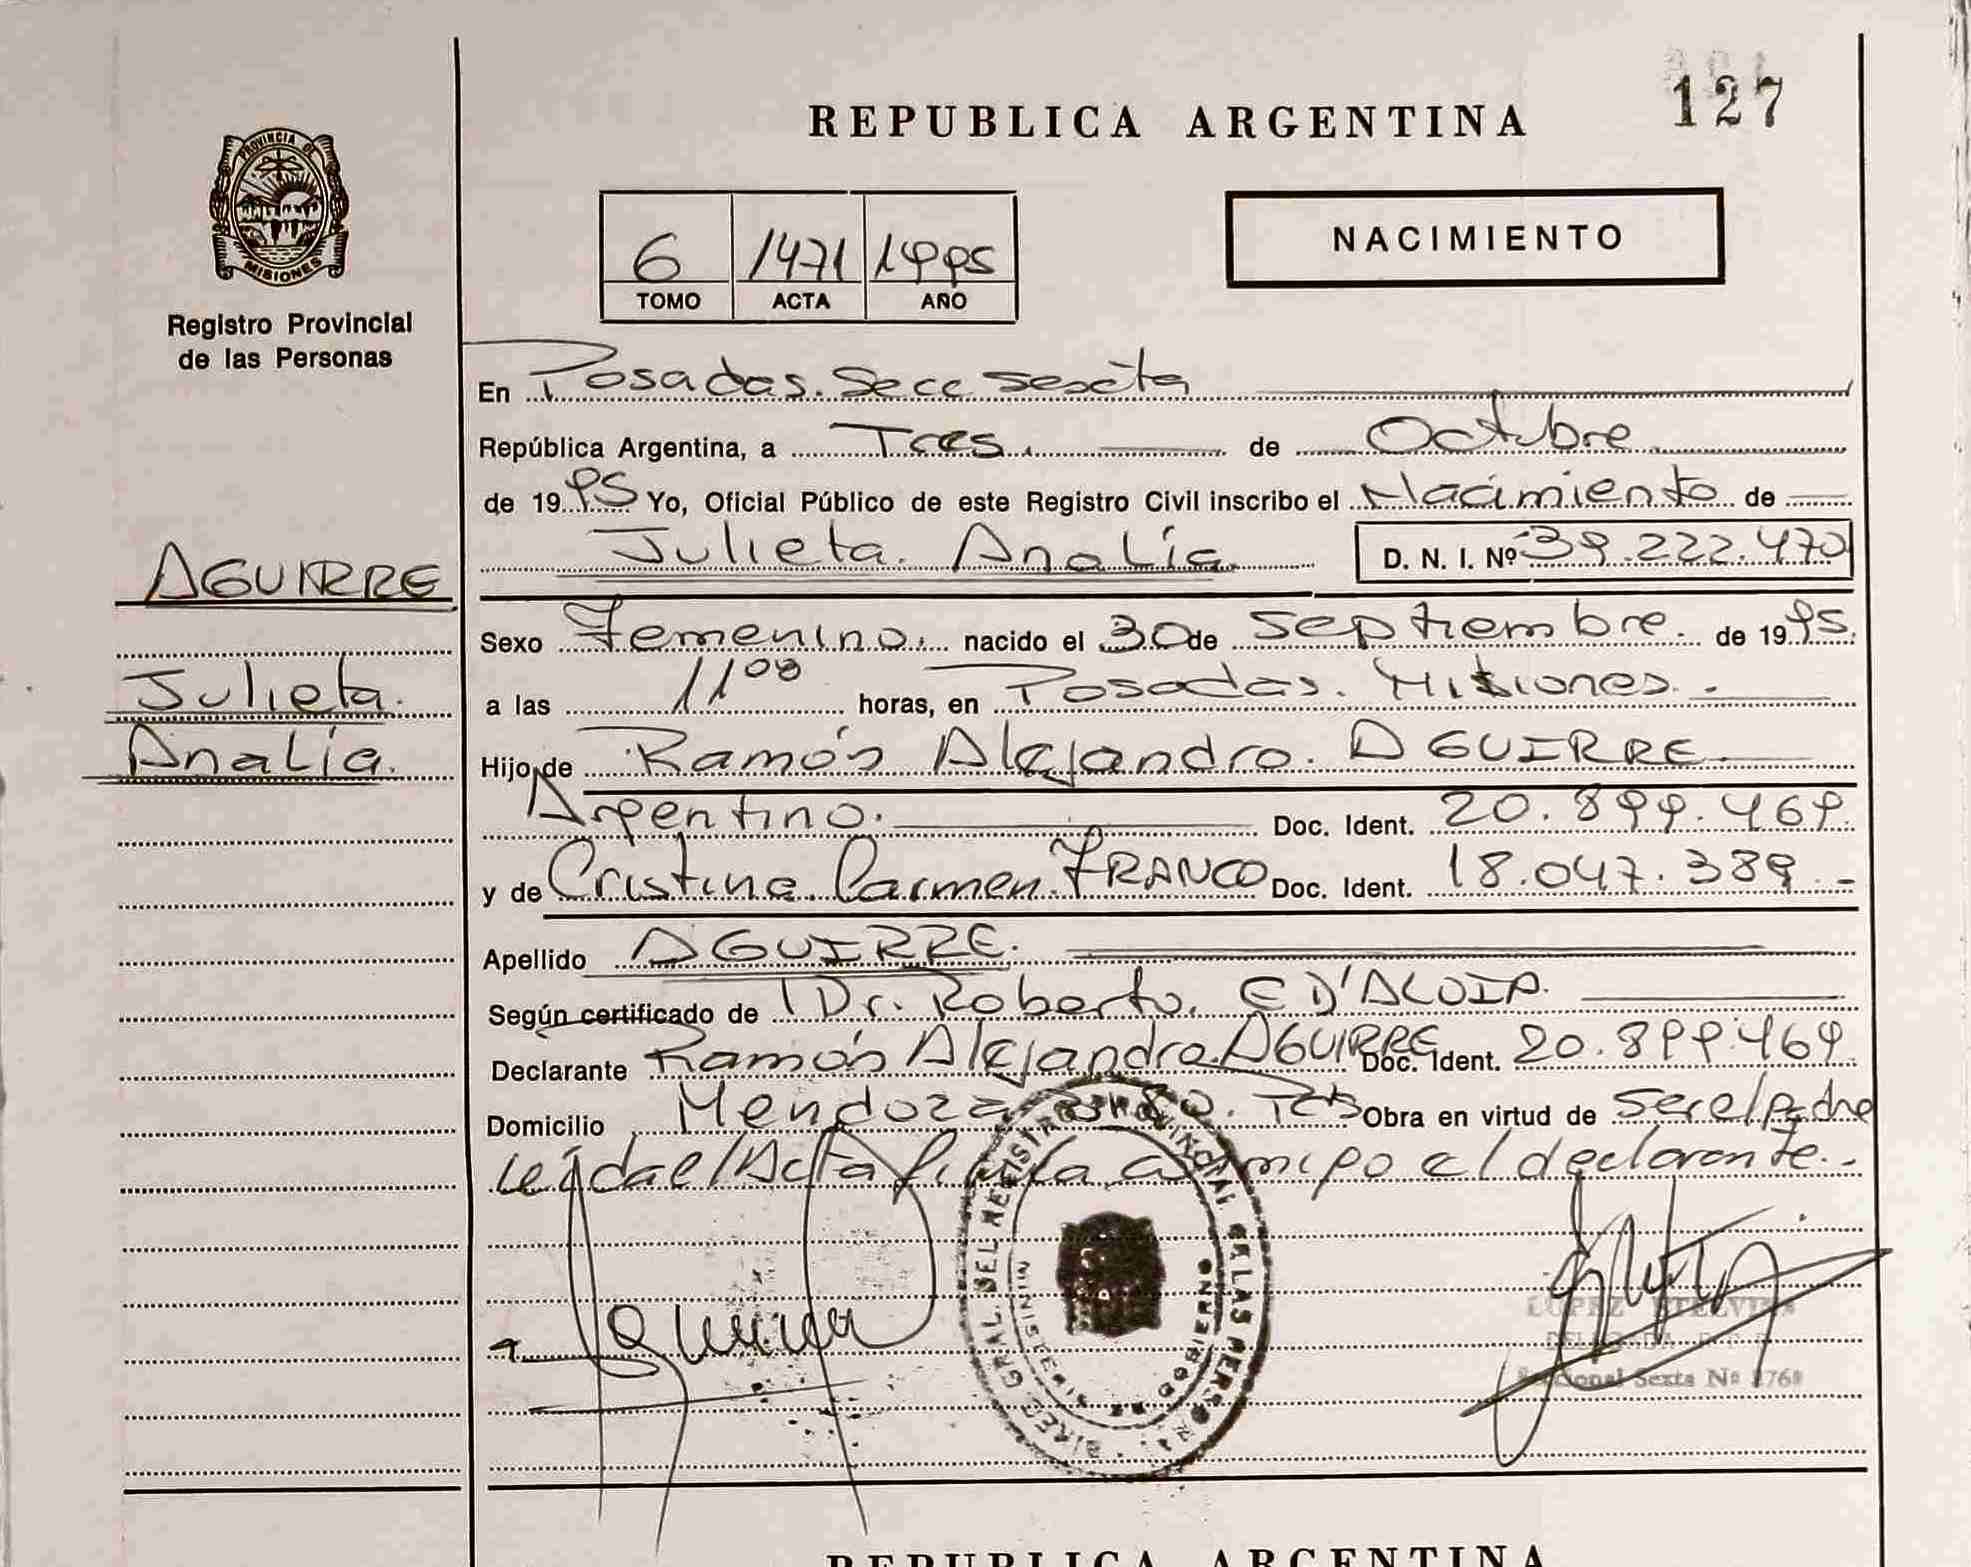 REPUBLICA ARGENTINA
127
PROVINCIA DE
MISIONES
Registro Provincial
de las Personas
6 1471 1995
TOMO ACTA AÑO
NACIMIENTO
En Posadas. Secc sexta
República Argentina, a Tres. de Octubre
de 1995 Yo, Oficial Público de este Registro Civil inscribo el Nacimiento de
Julieta. Analía. D. N. I. Nº 39.222.470
AGUIRRE
Julieta.
Analía.
Sexo Femenino. nacido el 30 de Septiembre. de 1995.
a las 11⁰⁰ horas, en Posadas. Misiones.-
Hijo de Ramón Alejandro. AGUIRRE
Argentino. Doc. Ident. 20.899.469.
y de Cristina. Carmen. FRANCO Doc. Ident. 18.047.389.-
Apellido AGUIRRE.
Según certificado de Dr. Roberto. E D'ALOIA.
Declarante Ramón Alejandro. AGUIRRE Doc. Ident. 20.899.469.
Domicilio Mendoza Obra en virtud de ser el padre
Leída el Acta la conmigo el declarante.-
DIREC. GRAL. DEL REGISTRO PROVINCIAL DE LAS PERSONAS
MINISTERIO DE GOBIERNO
LOPEZ
Sexta Nº
REPUBLICA ARGENTINA